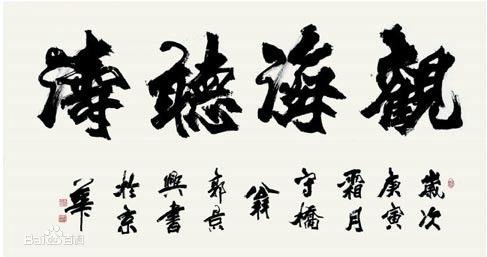 觀海聽濤
歲次
庚寅
霜月
守橋
翁
郭景
興書
於京
華
Bai百科